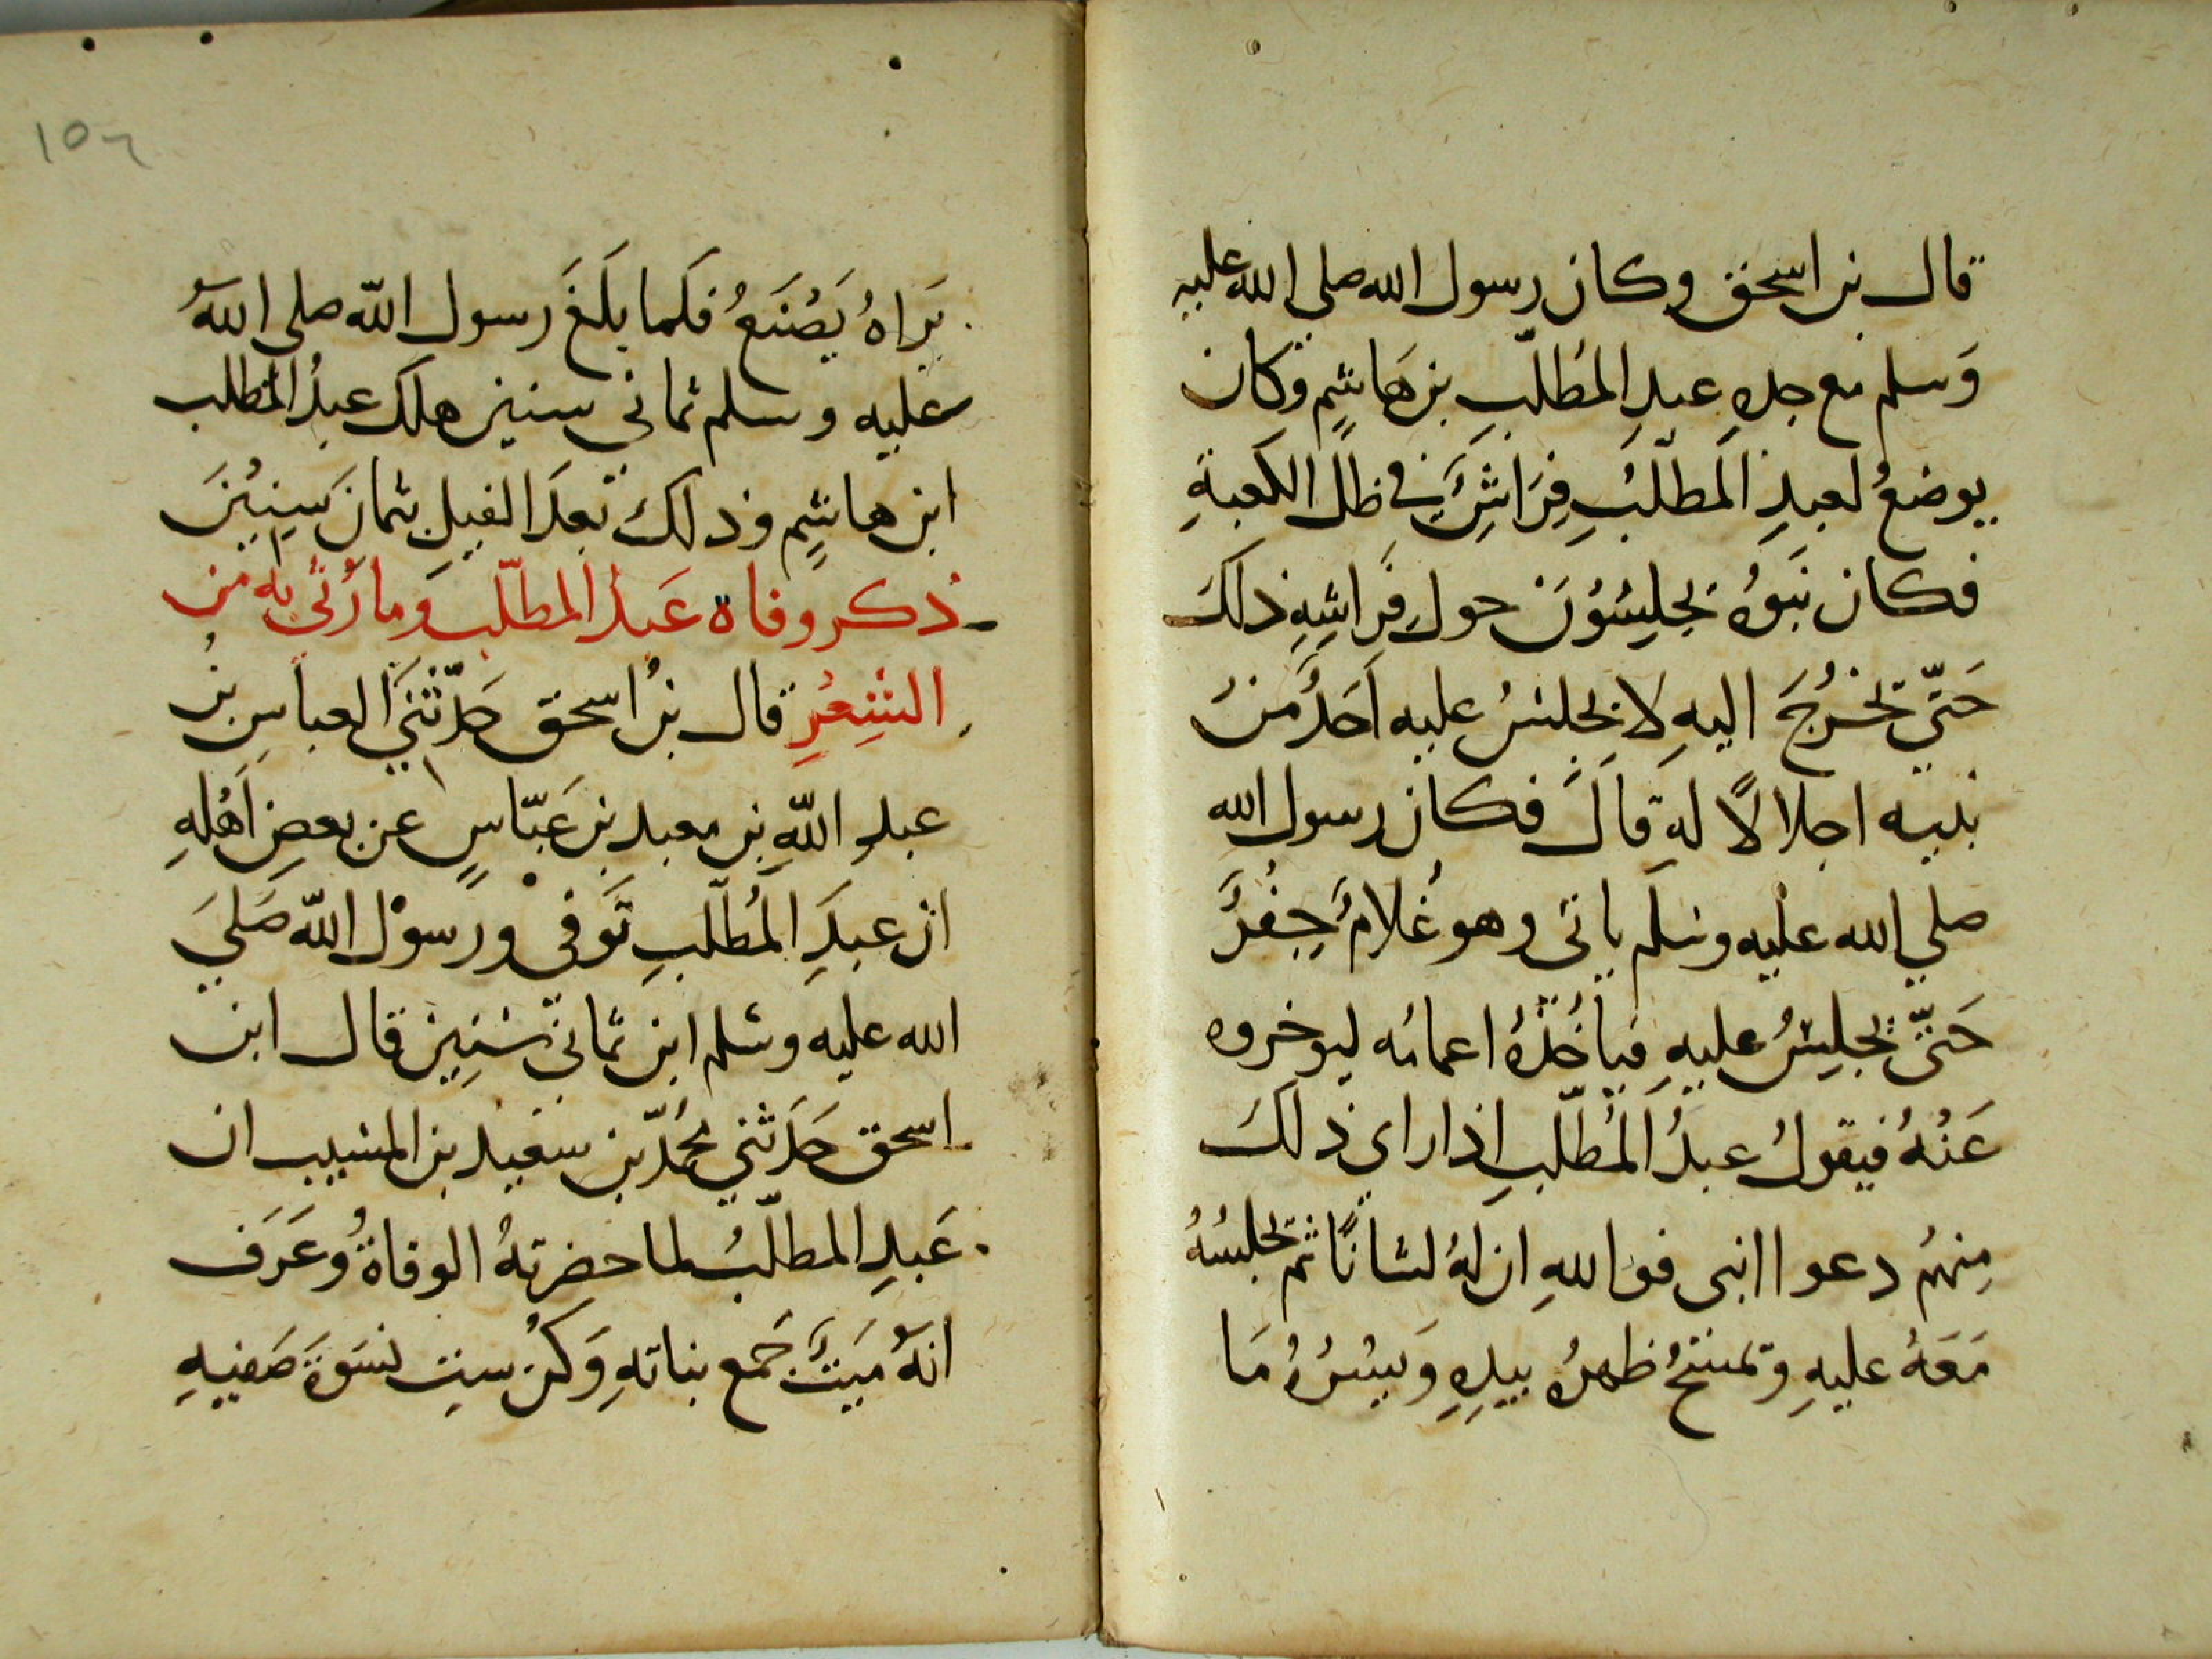 قال بن اسحق وكان رسول الله صلى الله عليه
وَسلم مع جدهِ عبدِ المُطلّبِ بن هَاشِمٍ وكان
يوضعُ لعبدِ المطلّبِ فِرَاشٌ في ظلّ الكعبةِ
فكان بَنوُهُ يجلِسُوُنَ حول فِرَاشِهِ ذلكَ
حَتّي يخْرُجَ اليهِ لا يجلسُ عليه اَحَدٌ منْ
بنيه اجلالاً لهِ قالَ فكان رسول الله
صلي الله عليه وسلم ياتى وهو غُلامٌ جفْرٌ
حَتّى يجلِسُ عليهِ فياخُذُهُ اعمامُه ليوخروه
عَنْهُ فيقولُ عبدُ المُطلّبِ اذا راى ذلكَ
مِنهُم دعوا ابنى فوَاللهِ ان لهُ لشانًا ثم يجلسُهُ
مَعَهُ عليهِ ويمسَحُ ظهرهُ بيدِهِ وَيسُرُهُ مَا
١٥٦
يَرَاهُ يَصْنَعُ فلَما بلَغَ رسول الله صلى الله
عليه وسلم ثماني سنين هلك عبدُ المطلب
ابن هاشِمٍ وذلك بَعدَ الفيلِ بثمانَ سِنِيْنَ
ذكر وفاة عَبد المطلّب وما رُثي به من
الشِعْرِ قال بنُ اسحق حَدّثَنَي العباسِ بنُ
عبدِ اللّهِ بن معبد بن عَبّاسٍ عن بعضِ اَهْلهِ
ان عبدَ المُطلّبِ تَوفي ورسوْل اللّه صَليَ
الله عليه وسلم ابن ثماني سَنِينَ قال ابن
اسحق حَدَثني محُمّدُ بن سعيد بن المسيب ان
عَبدِ المطلّبُ لما حضرتهُ الوفاةُ وعَرَف
انهُ مَيتٌ جَمع بناتهِ وَكنُ ستِ نسَوةَ صَفيهِ